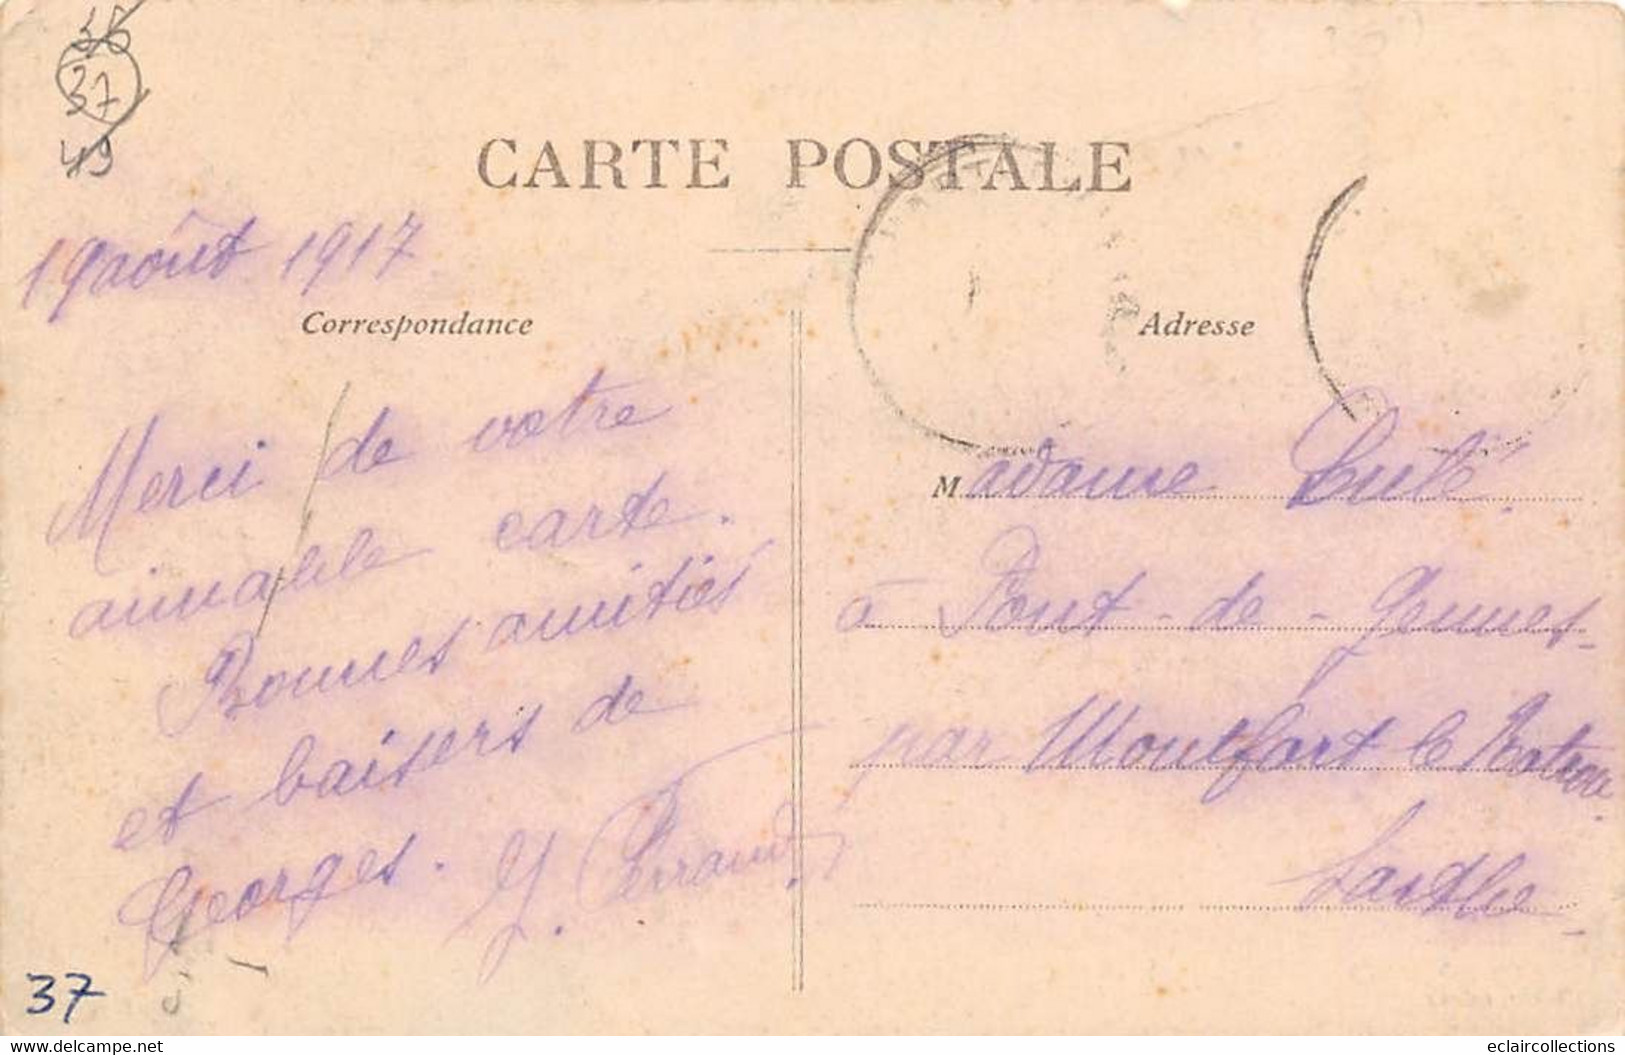 36
37
49
CARTE POSTALE
19 août 1917
Correspondance
Merci de votre
aimable carte.
Bonnes amitiés
et baisers de
Georges. G. Ferrand
37
Adresse
Madame
à Pont-de-Gennes
par Montfort le Rotrou
Sarthe
www.delcampe.net
eclaircollections